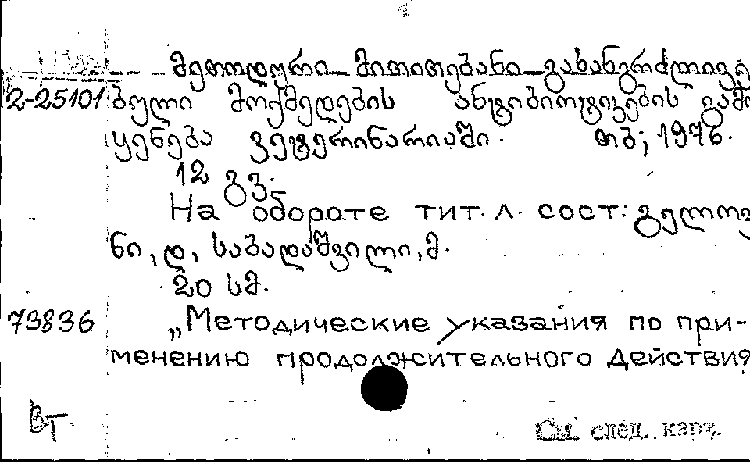 მეთოდური მითითებანი გახანგრძლივე
2-25101 ბული მოქმედების ანტიბიოტიკების გამო
ყენება ვეტერინარიაში. თბ; 1976.
12 გვ.
На обороте тит. л. сост: გელოვ
ნი, დ, საბადაშვილი, მ.
20 სმ.
73836 „Методические указания по при-
менению продолжительного действия
Вт
См. спец. карт.